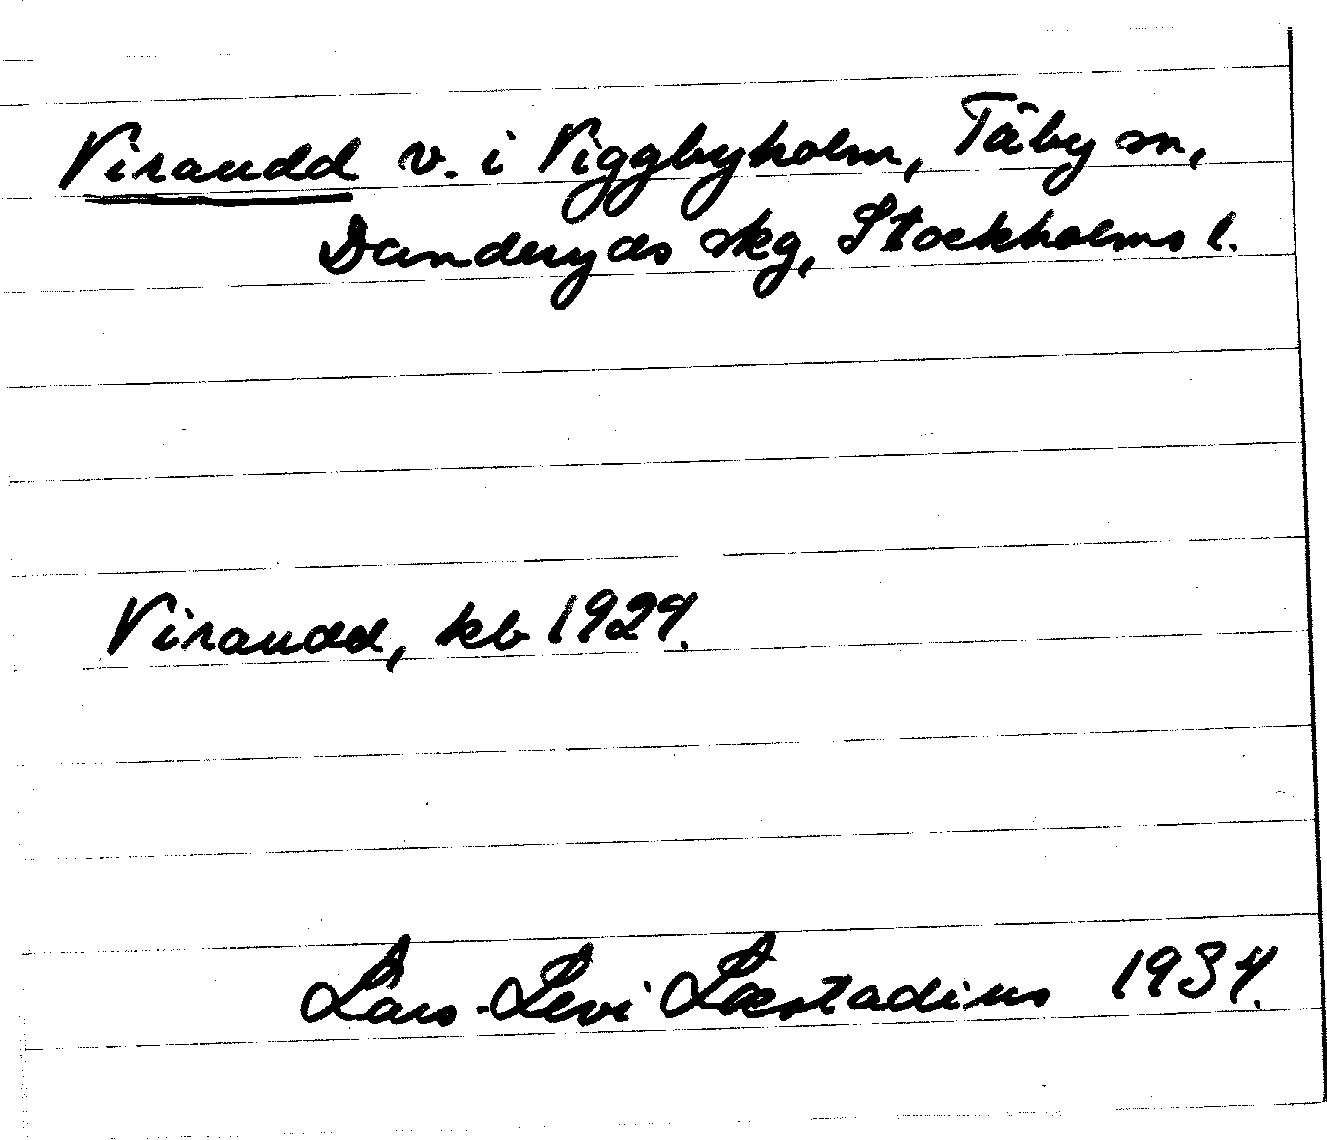 Viraudd v. i Viggbyholm, Täby sn,
Danderyds skg, Stockholms l.
Viraudd, kb 1929.
Lars-Levi Læstadius 1934.